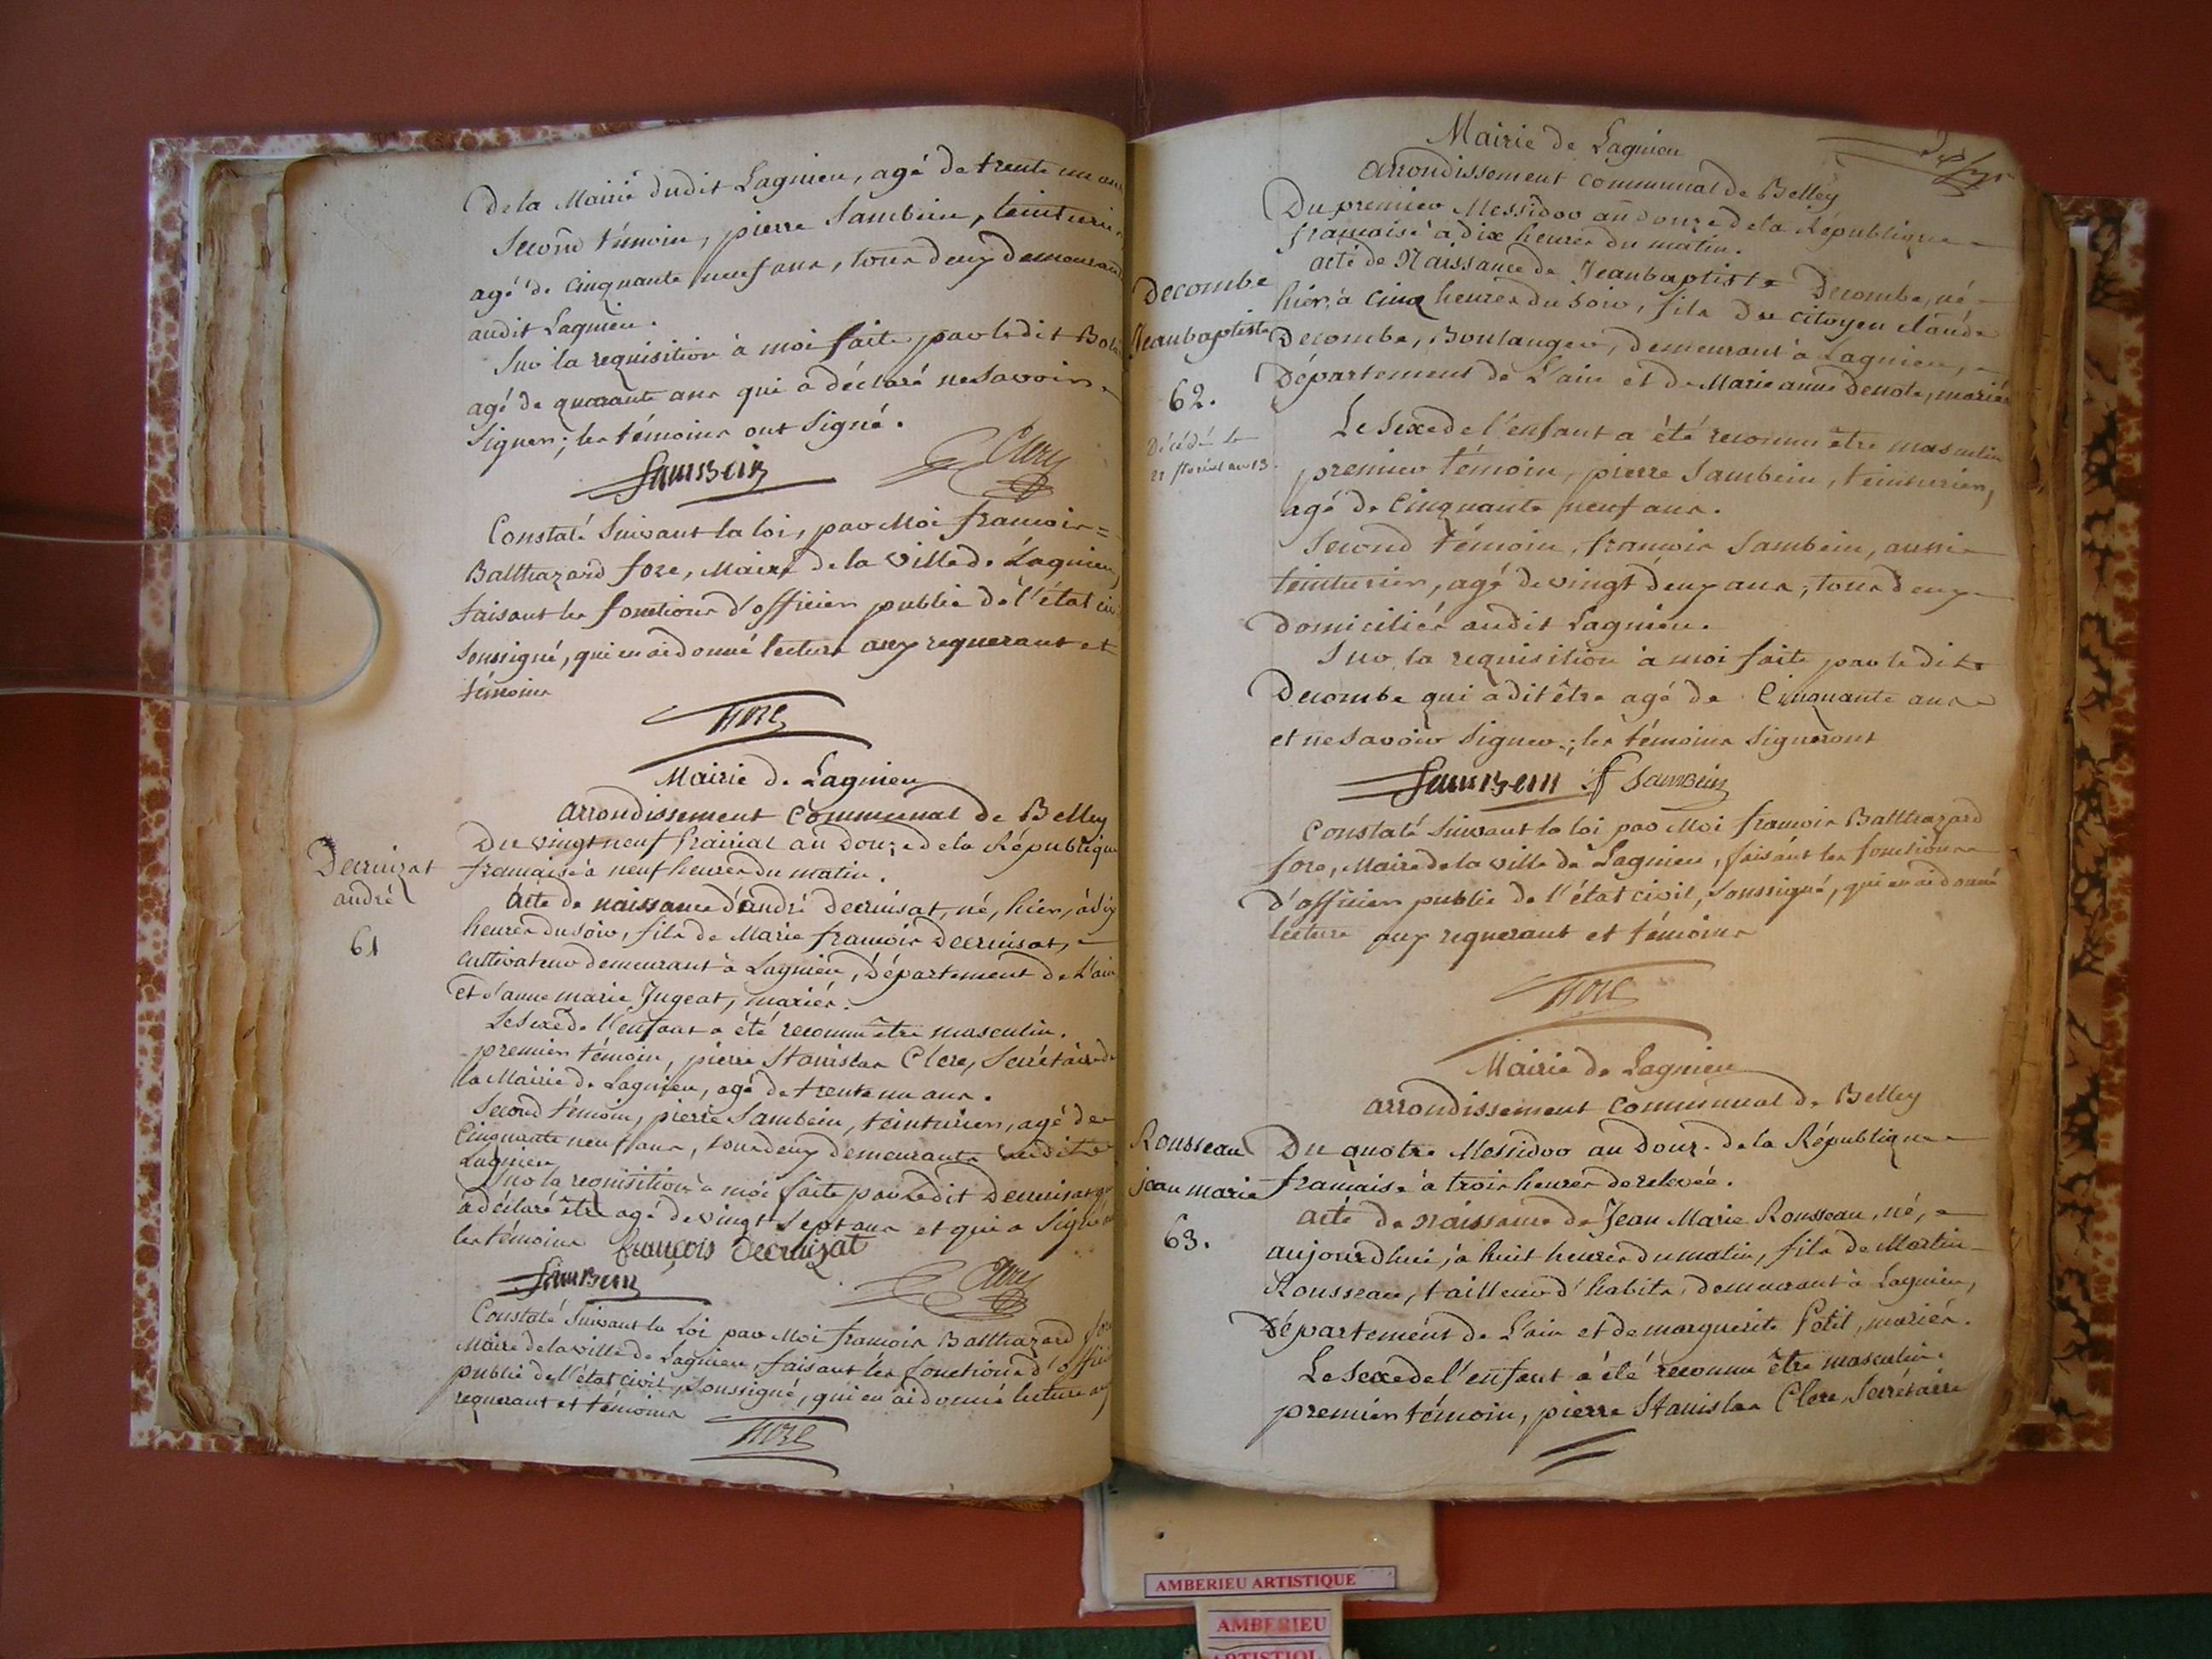 De la Mairie dudit Lagnieu, agé de trente un ans
Second témoin, pierre Sambein, teinturier
agé de cinquante neuf ans, tous deux demeurant
audit Lagnieu.
Sur la requisition à moi faite par ledit
agé de quarante ans qui a déclaré ne Savoir
Signer; les témoins ont Signé.
Sambein Clerc
Constaté Suivant la loi, par Moi françois=
Balthazard fore, Maire de la Ville de Lagnieu,
faisant les fonctions d'officier public de l'état civ
Soussigné, qui en ai donné lecture aux requerant et
témoins
fore
Mairie de Lagnieu
arrondissement Communal de Belley
Decruizat
andré
61
Du vingt neuf Prairial an Douze de la République
francaise à neuf heures du matin.
Acte de naissance d'andré decruisat, né, hier, à dix
heures du Soir, fils de Marie françois Decruisat,
cultivateur demeurant à Lagnieu, Département de L'ain
et d'anne marie Jugeat, mariés.
Le Sexe de l'enfant a été reconnu être masculin.
premier témoin, pierre Stanislas Clerc, Secrétaire de
la Mairie de Lagnieu, agé de trente un ans.
Second témoin, pierre Sambein, teinturier, agé de
Cinquante neuf ans, tous deux demeurants audit
Lagnieu
Sur la requisition à moi faite par Ledit Decruisat qui
a déclaré être agé de vingt Sept ans et qui a Signé
les témoins françois decruizat
Sambein Clerc
Constaté Suivant la Loi par Moi françois Balthazard fore
Maire de la ville de Lagnieu, faisant les fonctions d'officier
public de l'état civil, Soussigné, qui en ai donné lecture aux
requerant et témoins
fore
Mairie de Lagnieu
arrondissement communal de Belley
Du premier Messidor an douze de la République
francaise à dix heures du matin.
Decombe
Jeanbaptiste
62.
Décédé le
floréal an 13.
acte de Naissance de Jeanbaptiste Decombe, né
hier, à cinq heures du Soir, fils du citoyen claude
Decombe, Boulanger, demeurant à Lagnieu,
Département de L'ain et de Marie anne Denote, mariés
Le Sexe de l'enfant a été reconnu être masculin
premier témoin, pierre Sambein, teinturier,
agé de Cinquante neuf ans.
Second témoin, francois Sambein, aussi
teinturier, agé de vingt deux ans; tous deux
domiciliés audit Lagnieu.
Sur la requisition à moi faite par ledit
Decombe qui a dit être agé de Cinquante ans
et ne Savoir Signer; les témoins Signeront
Sambein f Sambein
Constaté Suivant la loi par Moi françois Balthazard
fore, Maire de la ville de Lagnieu, faisant les fonctions
d'officier public de l'état civil, Soussigné, qui en ai donné
lecture aux requerant et témoins
fore
Mairie de Lagnieu
arrondissement Communal de Belley
Rousseau
jean marie
63.
Du quatre Messidor an Douze de la République
francaise à trois heures de relevée.
acte de Naissance de Jean Marie Rousseau, né,
aujourdhui, à huit heures du matin, fils de Martin
Rousseau, tailleur d'habits, demeurant à Lagnieu,
Département de L'ain et de marguerite Petit, mariés.
Le Sexe de l'enfant a été reconnu être masculin.
premier témoin, pierre Stanislas Clerc, Secrétaire
AMBERIEU ARTISTIQUE
AMBERIEU